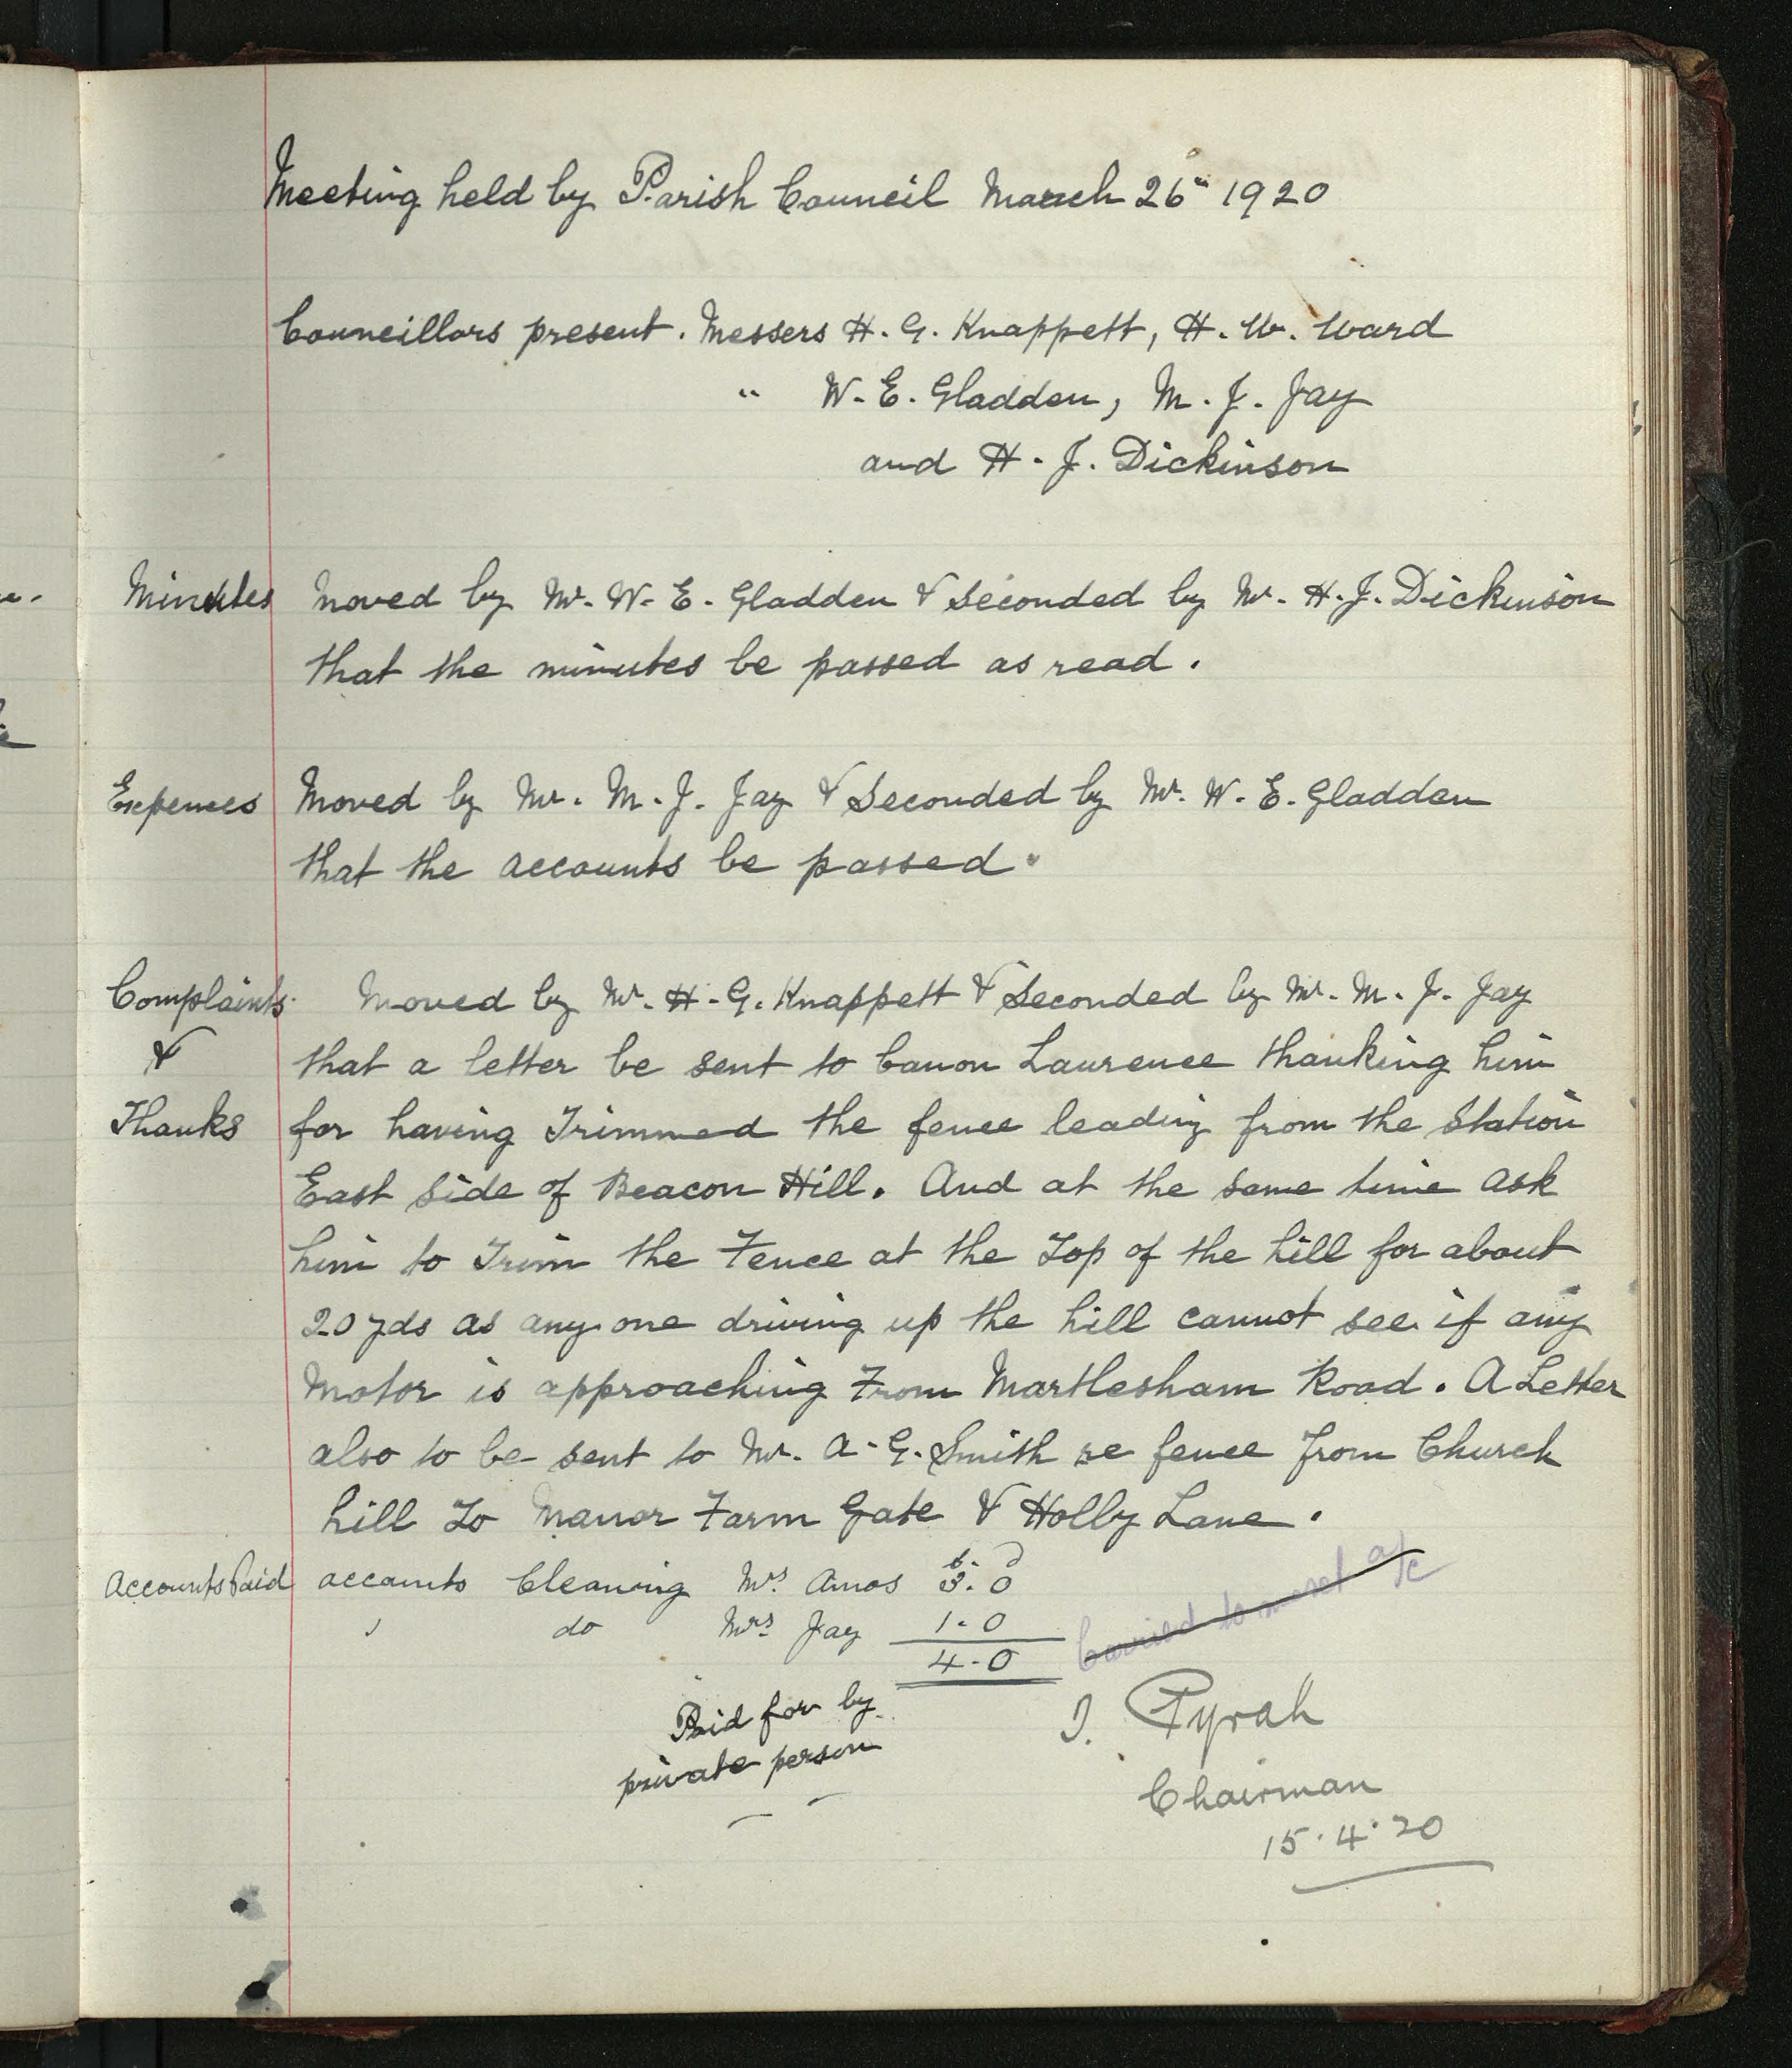 Meeting held by Parish Council March 26" 1920
Councillors present. Messers H. G. Knappett, H. W. Ward
" W. E. Gladden, M. J. Jay
and H. J. Dickinson
Minutes Moved by Mr. W. E. Gladden & Seconded by Mr. H. J. Dickinson
that the minutes be passed as read.
Expenses Moved by Mr. M. J. Jay & Seconded by Mr. W. E. Gladden
that the accounts be passed.
Complaints Moved by Mr. H. G. Knappett & Seconded by Mr. M. J. Jay
& that a letter be sent to Canon Laurence thanking him
Thanks for having Trimmed the fence leading from the Station
East Side of Beacon Hill. And at the same time ask
him to Trim the Fence at the Top of the hill for about
20 yds as any one driving up the hill cannot see if any
Motor is approaching From Martlesham Road. A Letter
also to be sent to Mr. A. G. Smith re fence from Church
hill To Manor Farm Gate & Holly Lane.
s. d
Accounts Paid accounts Cleaning Mrs Amos 3. 0
" do Mrs Jay 1. 0
4. 0
Carried to next a/c
Paid for by
private person
J. Pyrah
Chairman
15.4.20